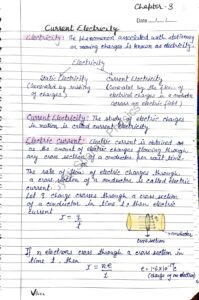 Chapter - 3
Date
Current Electricity
Electricity: The phenomenon associated with stationary
or moving charges is known as electricity.
Electricity
Static Electricity
Current Electricity
(Generated by rubbing
of charges)
(Generated by the flow of
electrical charges in a conductor
across an electric field)
Current Electricity: The study of electric charges
in motion is called current electricity.
Electric current: Electric current is defined as
as the amount of electric charges flowing through
any cross section of a conductor per unit time.
The rate of flow of electric charges through
a cross section of a conductor is called electric
current.
Let q charge crosses through a cross section
of a conductor in time t, then electric
current
I = q/t
conductor
cross section
If n electrons cross through a cross section in
time t, then
I = ne/t
e = 1.6×10⁻¹⁹c
(charge of an electron)